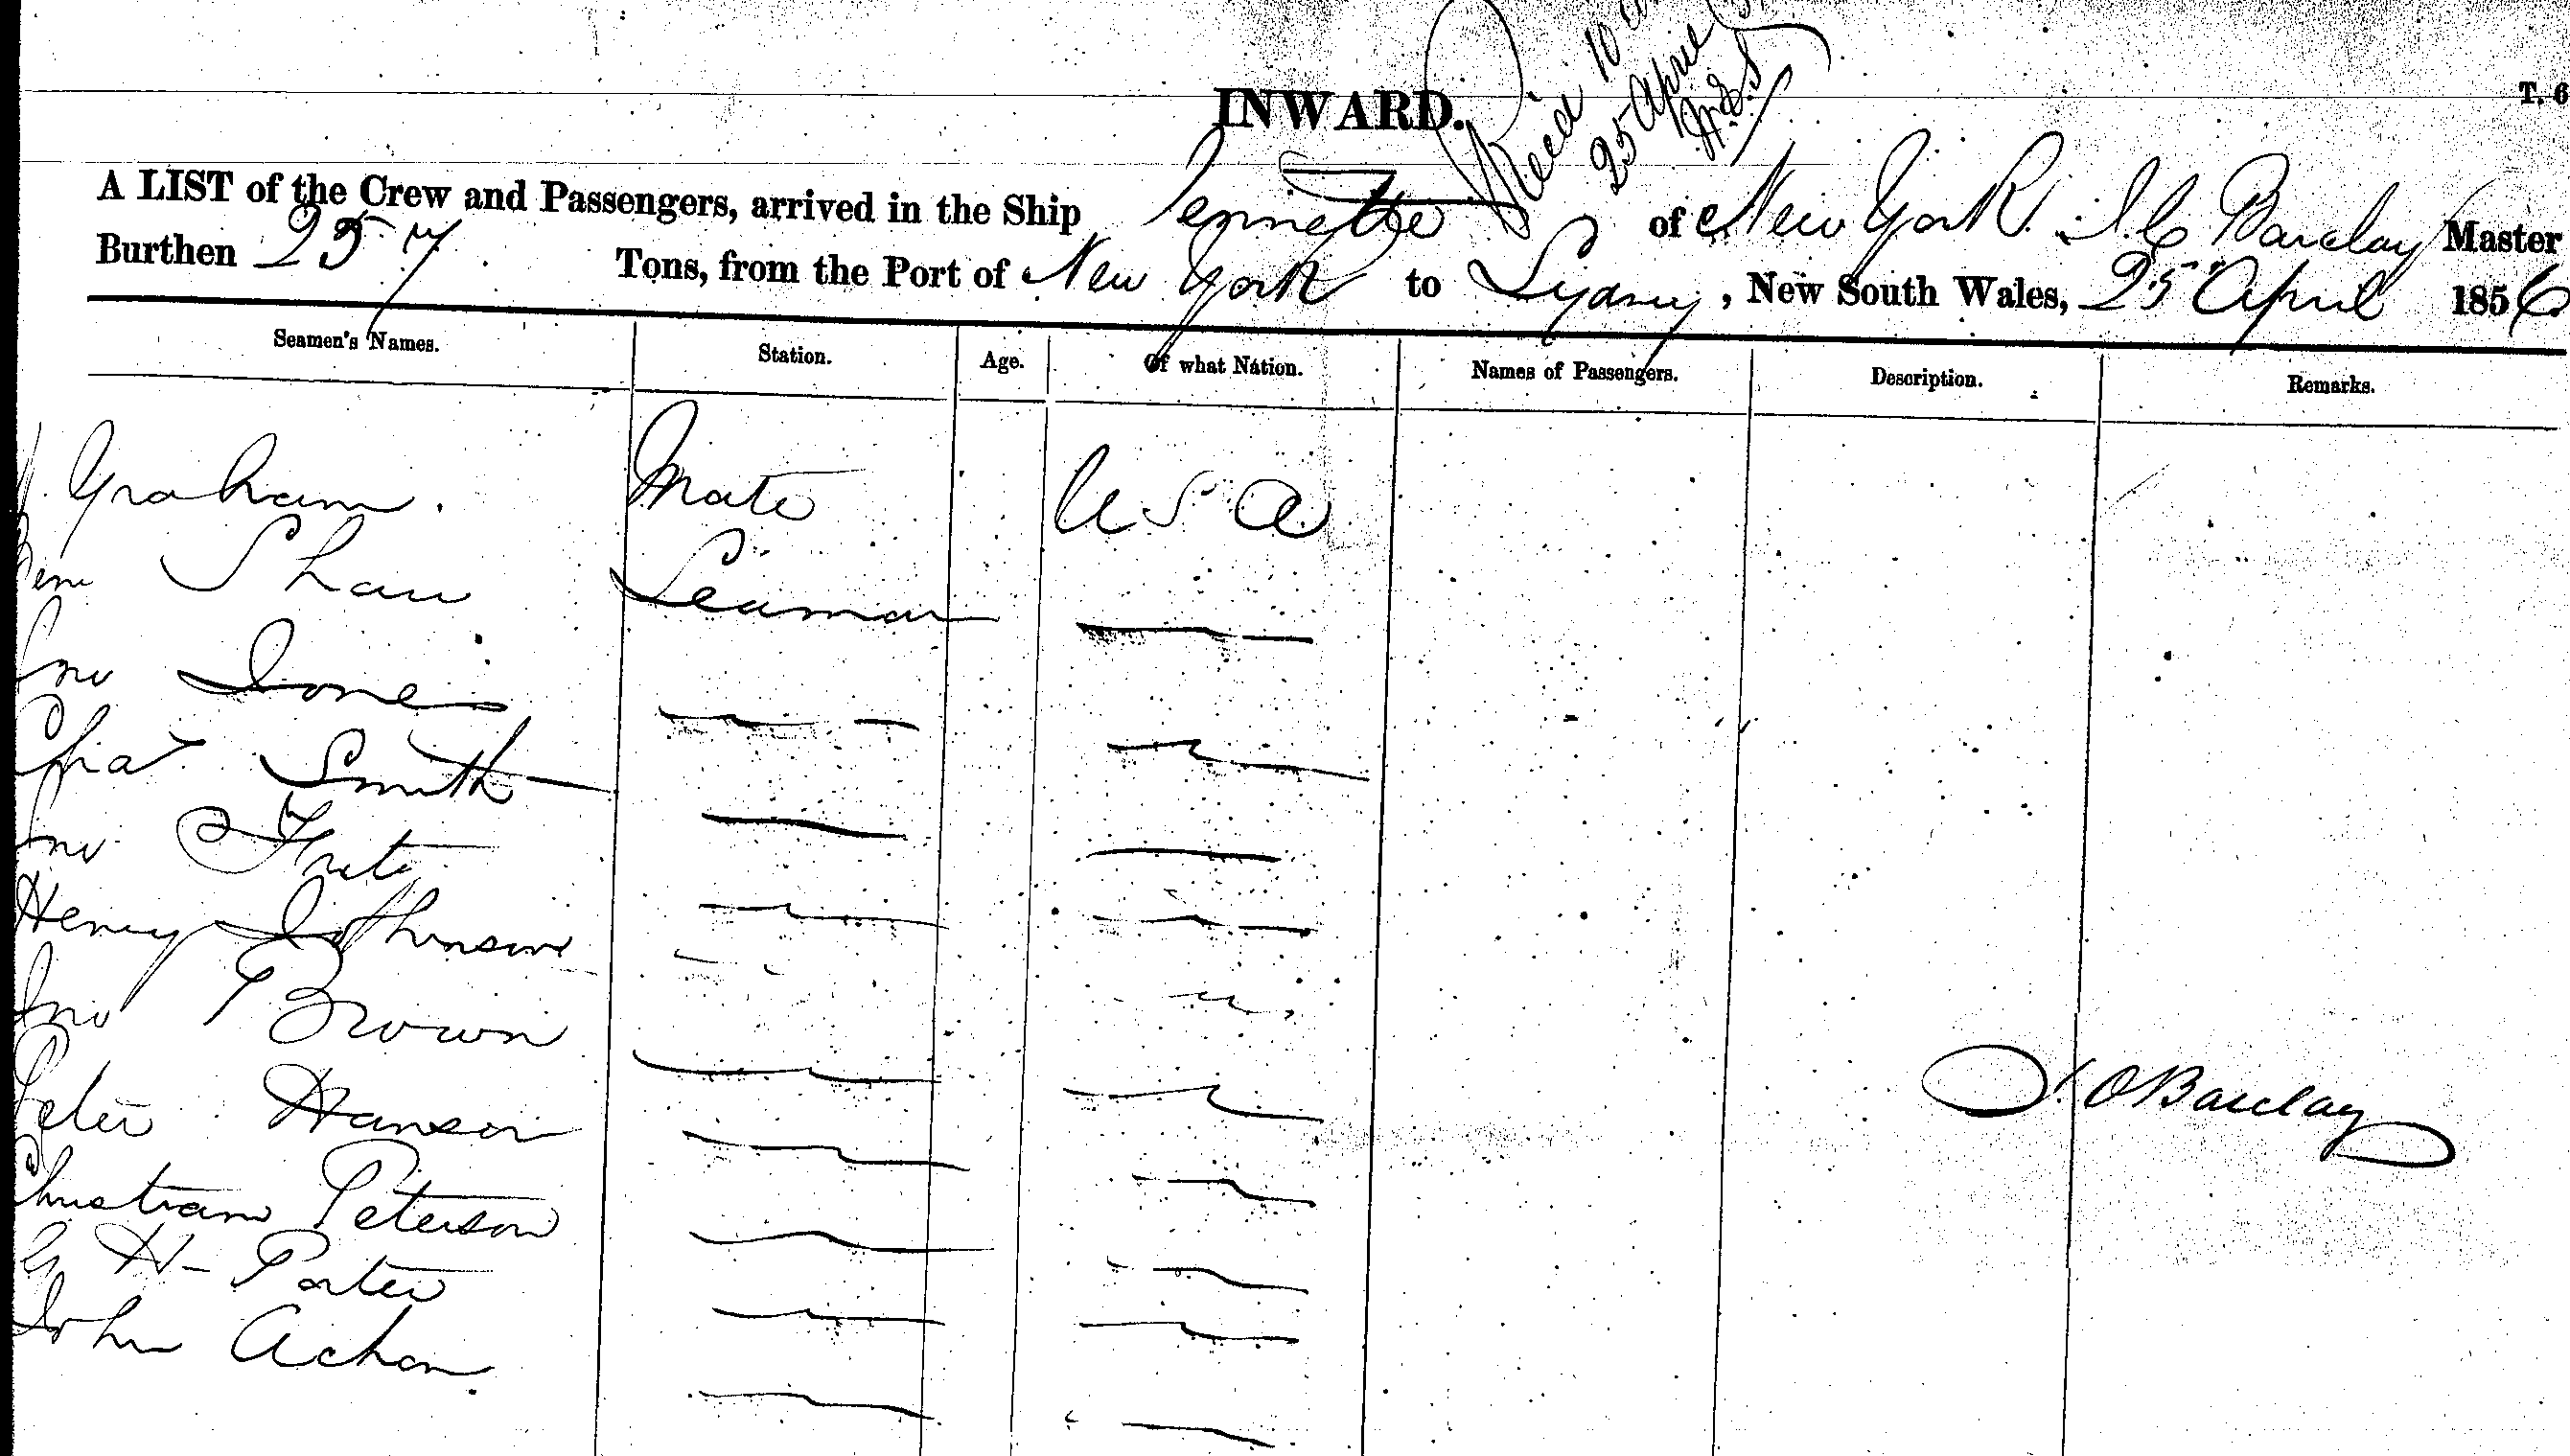 Recd 10 a
25 April
INWARD.
T. 6
A LIST of the Crew and Passengers, arrived in the Ship Jennette of New York. Barclay Master
Burthen 257 Tons, from the Port of New York to Sydney, New South Wales, 25 April 1856
Seamen's Names. Station. Age. Of what Nation. Names of Passengers. Description. Remarks.
Graham. Mate U S A
Shaw Seaman
Jno Jones
Chas Smith
Jno
Henry Johnson
Jno Brown
Peter Hanson
Christian Peterson
H - Porter
John Achon
Barclay